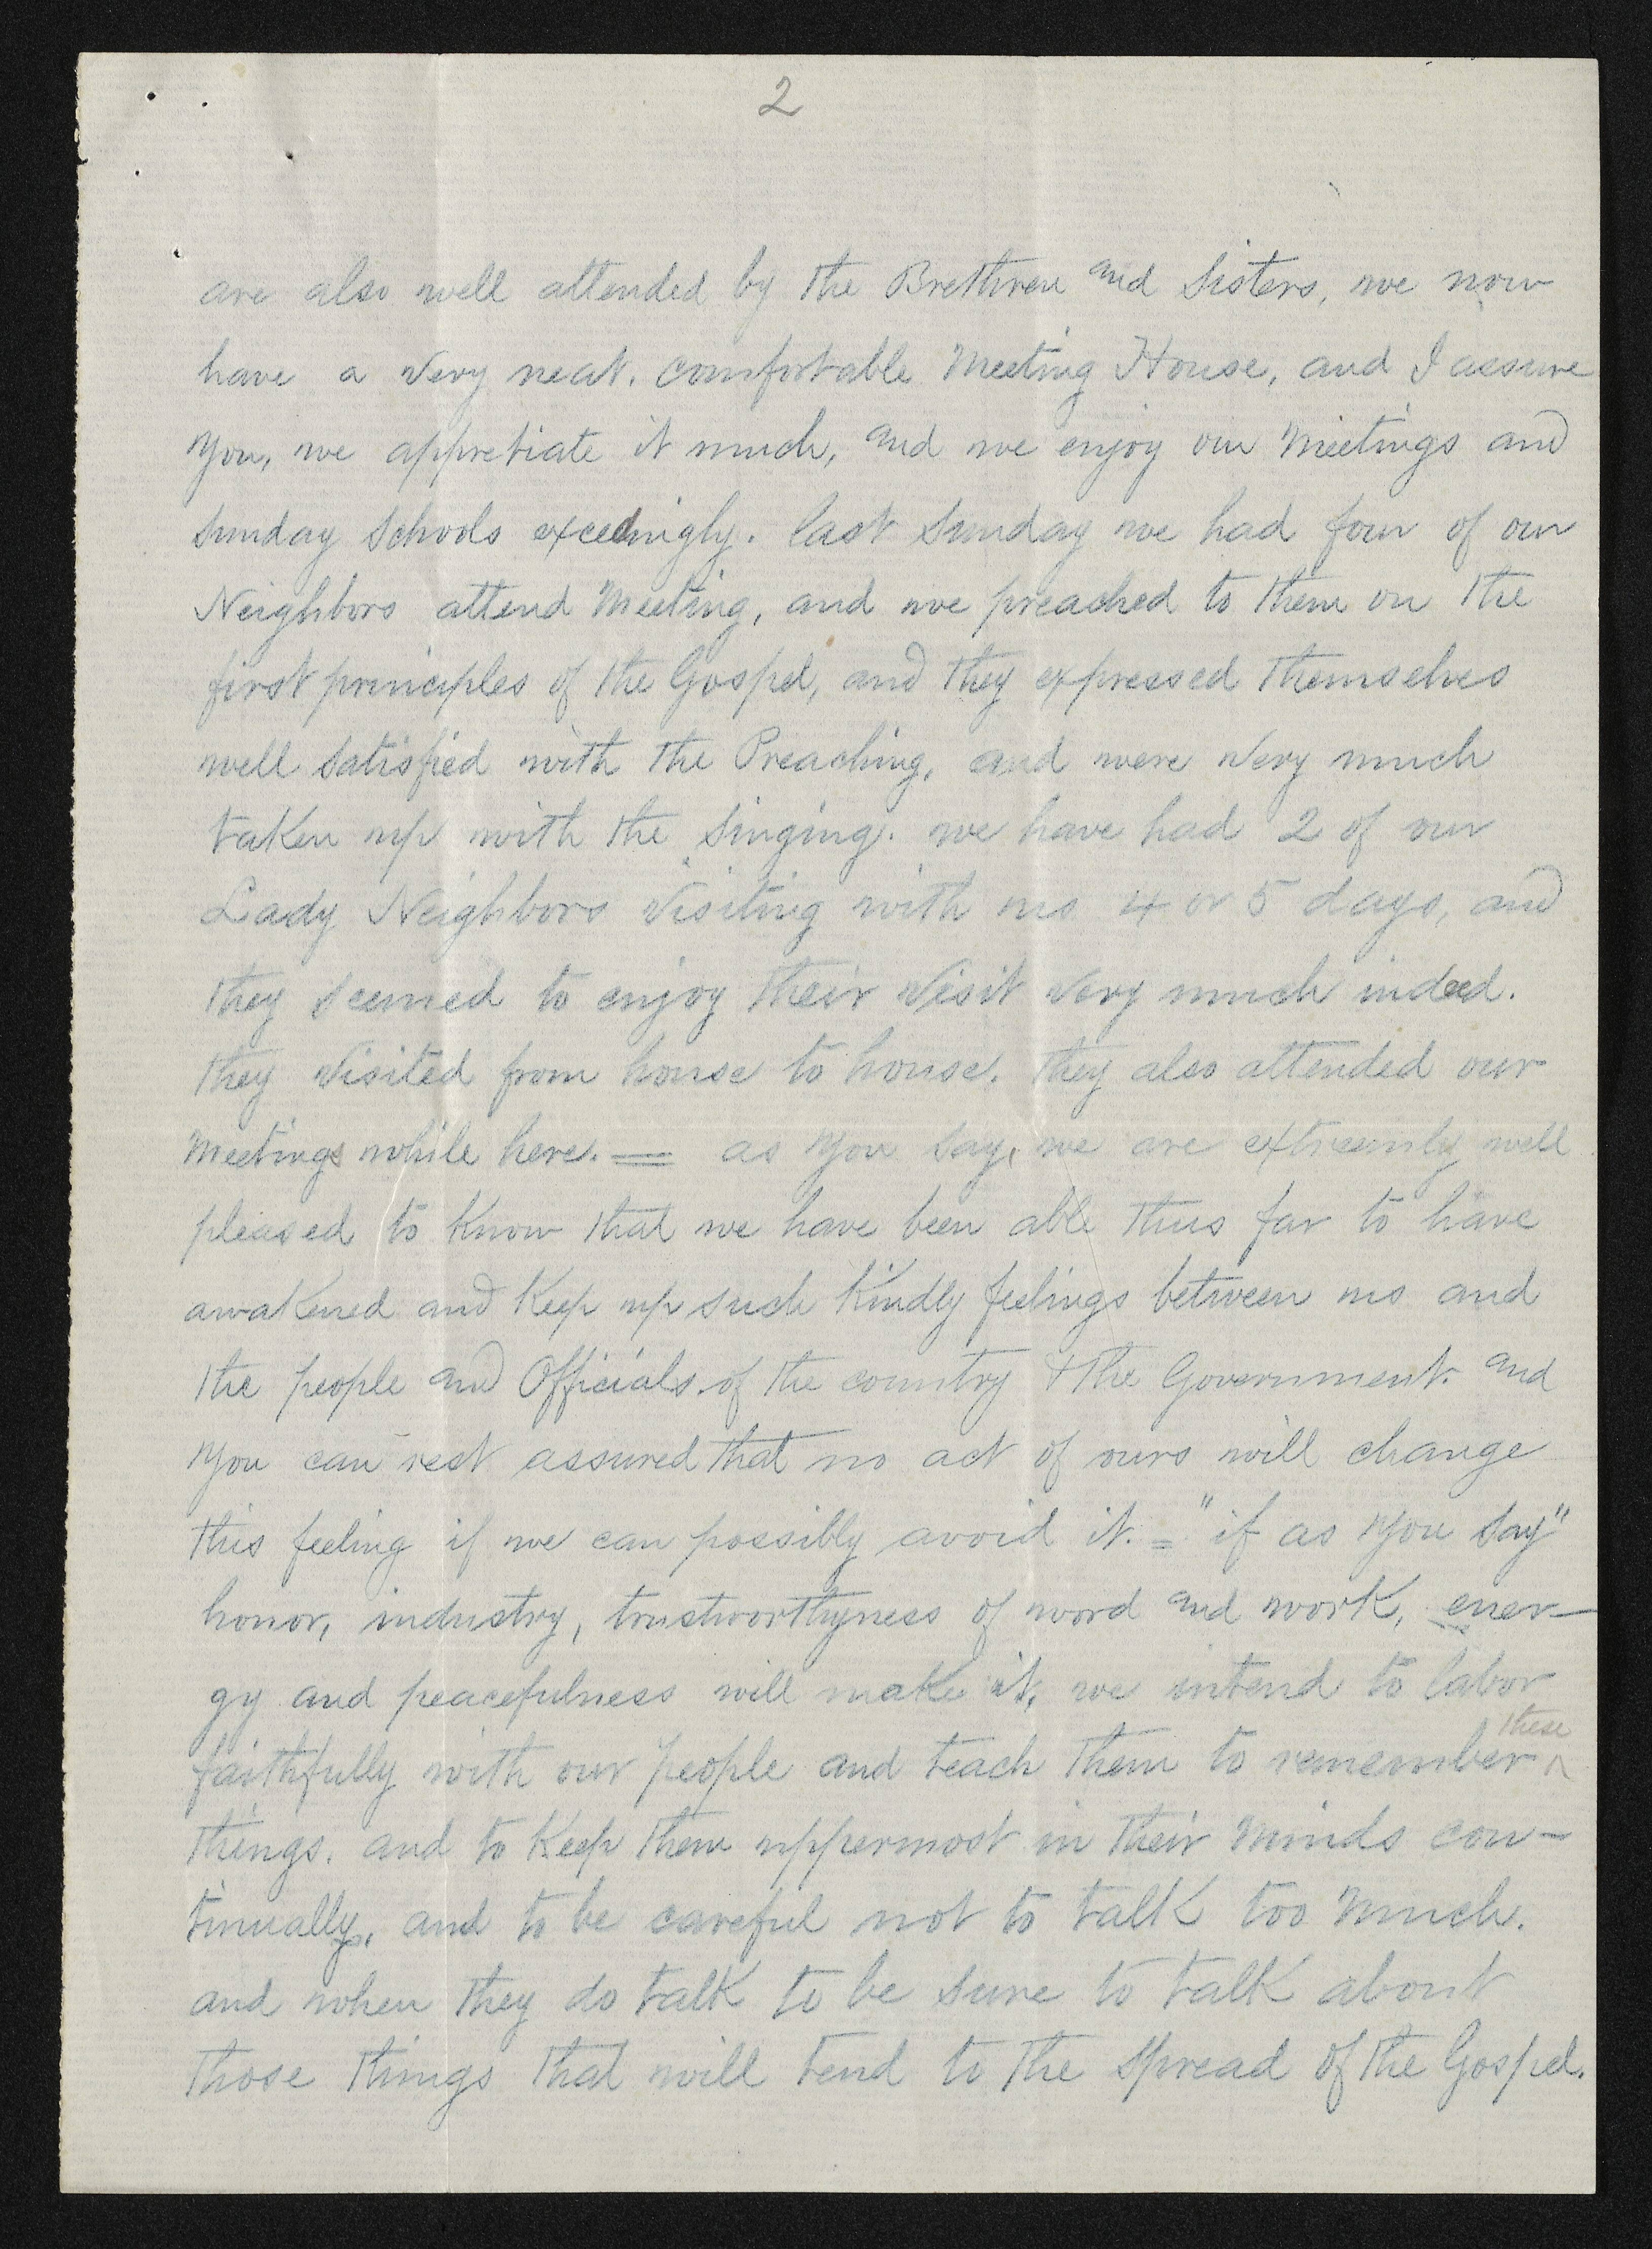 2
are also well attended by the Brethren and Sisters, we now
have a very neat. comfortable Meeting House, and I assure
you, we appretiate it much, and we enjoy our Meetings and
Sunday Schools exceedingly. last Sunday we had four of our
Neighbors attend Meeting, and we preached to them on the
first principles of the Gospel, and they expressed themselves
well satisfied with the Preaching, and were very much
taken up with the singing. we have had 2 of our
Lady Neighbors visiting with us 4 or 5 days, and
they seemed to enjoy their visit very much indeed.
they visited from house to house. they also attended our
Meetings while here. = as you say, we are extreemly well
pleased to know that we have been able thus far to have
awakened and Keep up such Kindly feelings between us and
the people and Officials of the country & the Government. and
you can rest assured that no act of ours will change
this feeling if we can possibly avoid it. = "if as you say"
honor, industry, trustworthyness of word and work, ener-
gy and peacefulness will make it, we intend to labor
faithfully with our people and teach them to remember ^these
things. and to Keep them uppermost in their minds con-
tinually, and to be careful not to talk too much.
and when they do talk to be sure to talk about
those things that will tend to the spread of the Gospel.